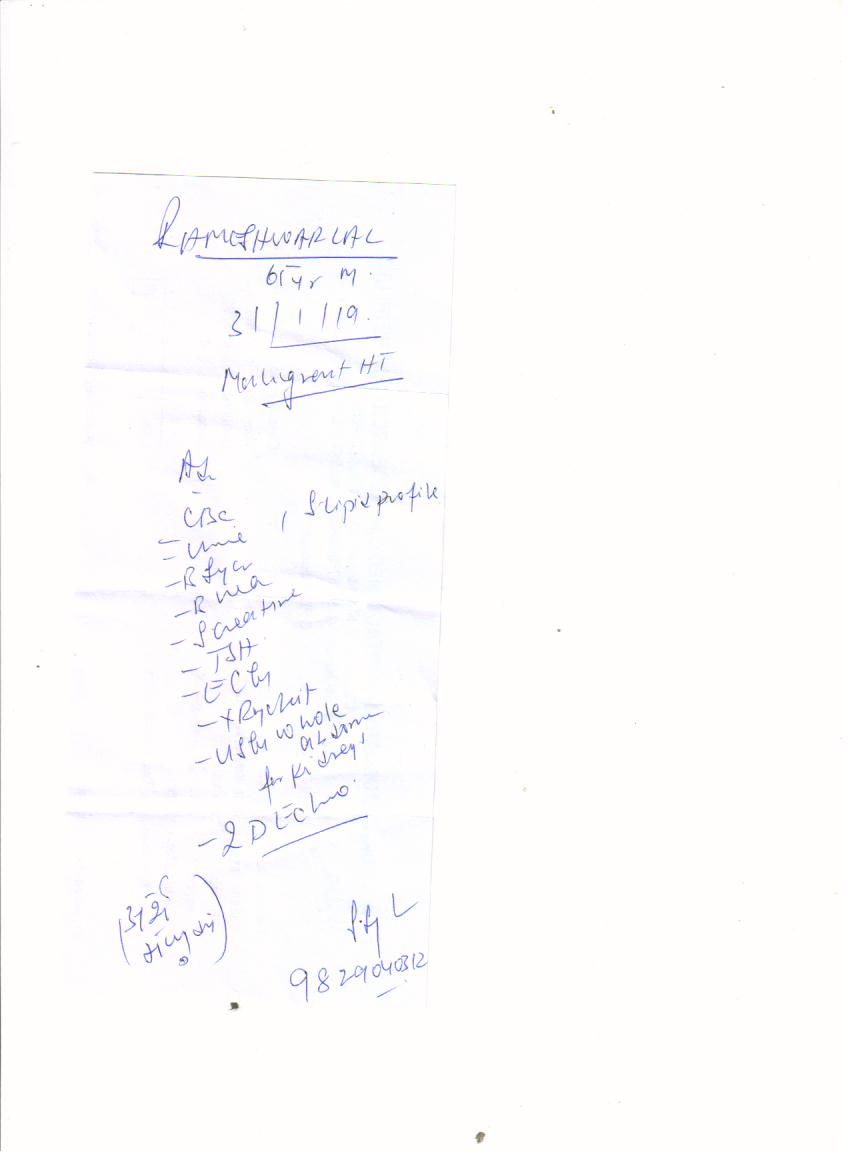 RAMESHWARLAL
65 yr M.
31/1/19.
Malignant HT
CBC, S. lipid profile
= Urine
- B Sugar
- B urea
- S creatine
- TSH
- ECG
- X Ray chest
- USG whole
abdomen
for Kidney
- 2D Echo
9829040312